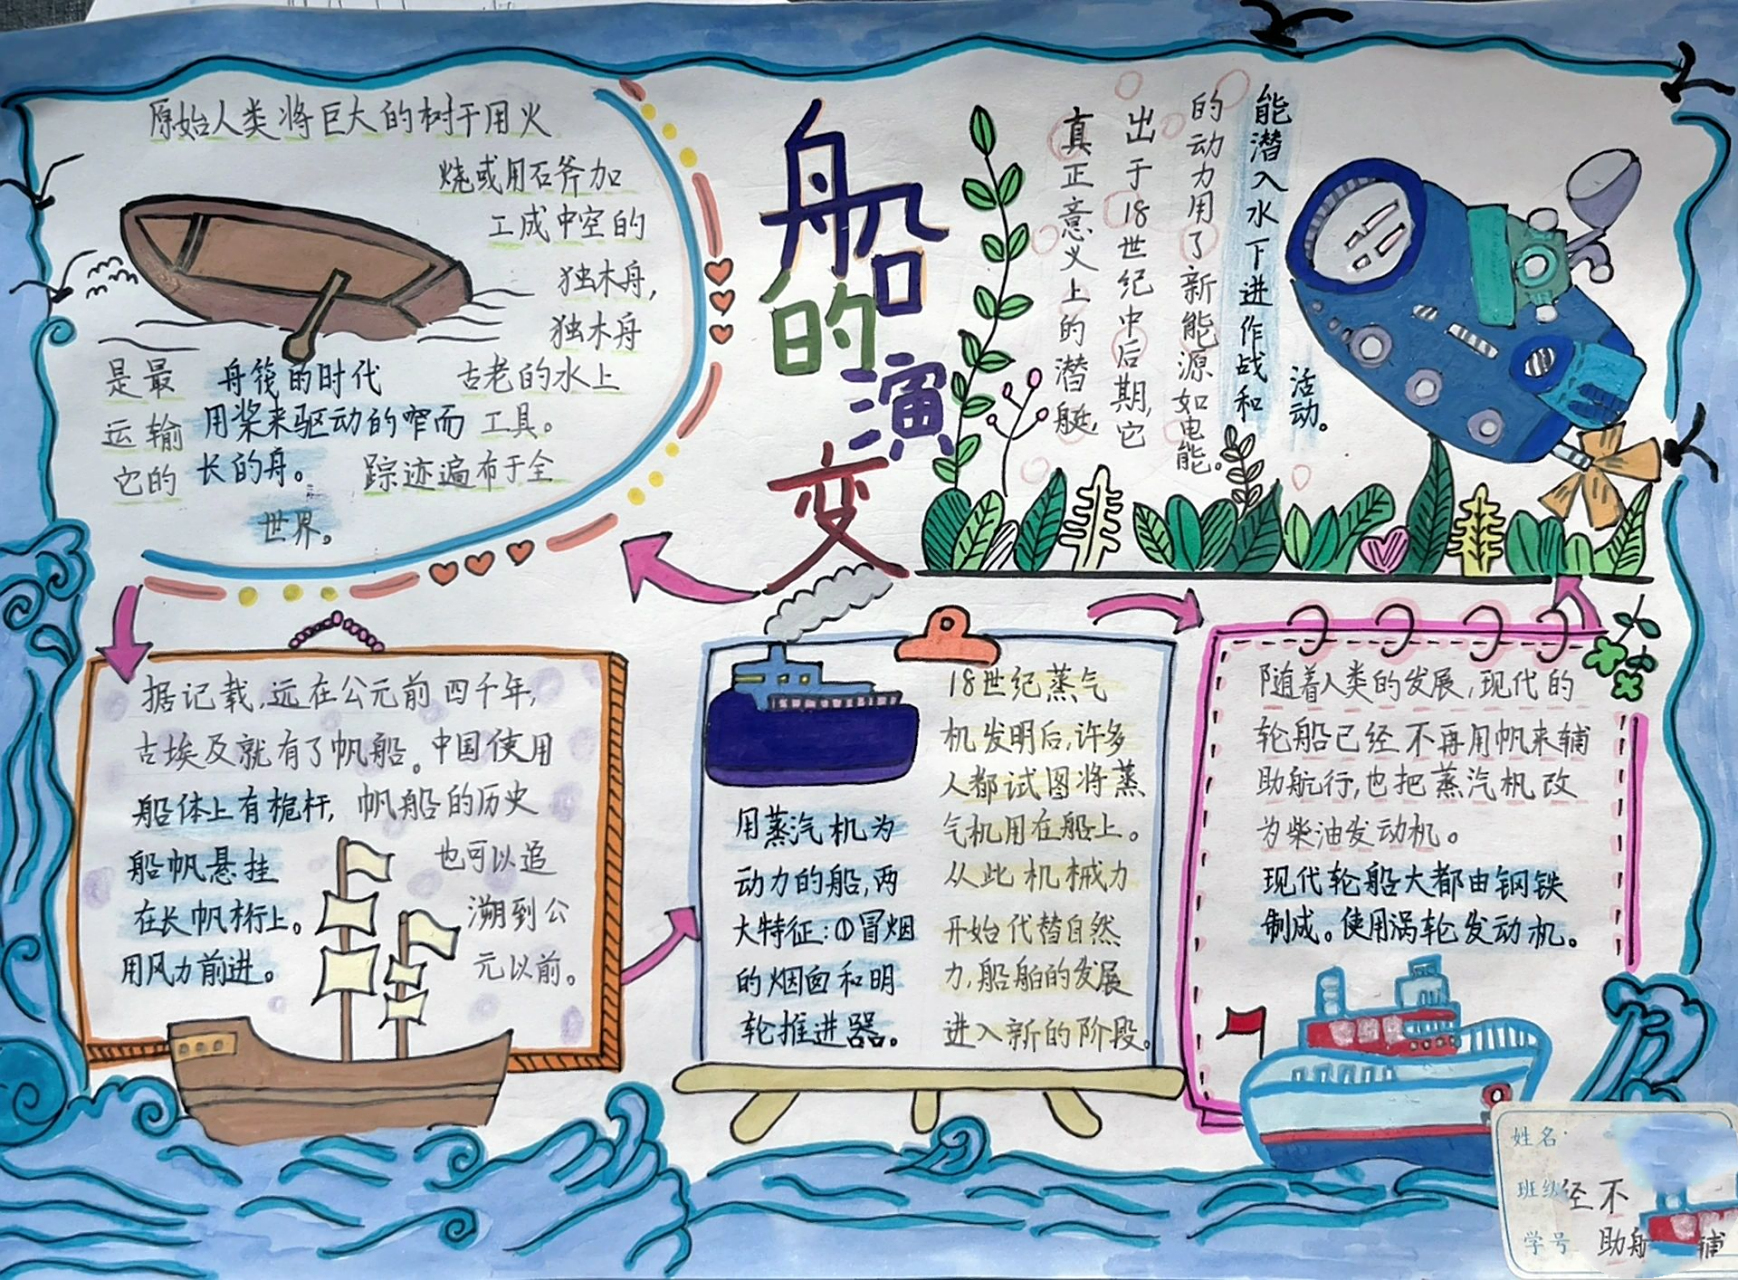 船的演变
原始人类将巨大的树干用火
烧或用石斧加
工成中空的
独木舟,
独木舟
是最
古老的水上
运输
工具。
它的
踪迹遍布于全
世界。
舟筏的时代
用桨来驱动的窄而
长的舟。
据记载,远在公元前四千年,
古埃及就有了帆船。中国使用
帆船的历史
也可以追
溯到公
元以前。
船体上有桅杆,
船帆悬挂
在长帆桁上。
用风力前进。
18世纪蒸气
机发明后,许多
人都试图将蒸
气机用在船上。
从此机械力
开始代替自然
力,船舶的发展
进入新的阶段。
用蒸汽机为
动力的船,两
大特征:①冒烟
的烟囱和明
轮推进器。
随着人类的发展,现代的
轮船已经不再用帆来辅
助航行,也把蒸汽机改
为柴油发动机。
现代轮船大都由钢铁
制成。使用涡轮发动机。
真正意义上的潜艇,
出于18世纪中后期,它
的动力用了新能源如电能。
能潜入水下进作战和
活动。
姓名:
班级
经不
学号
助航
辅